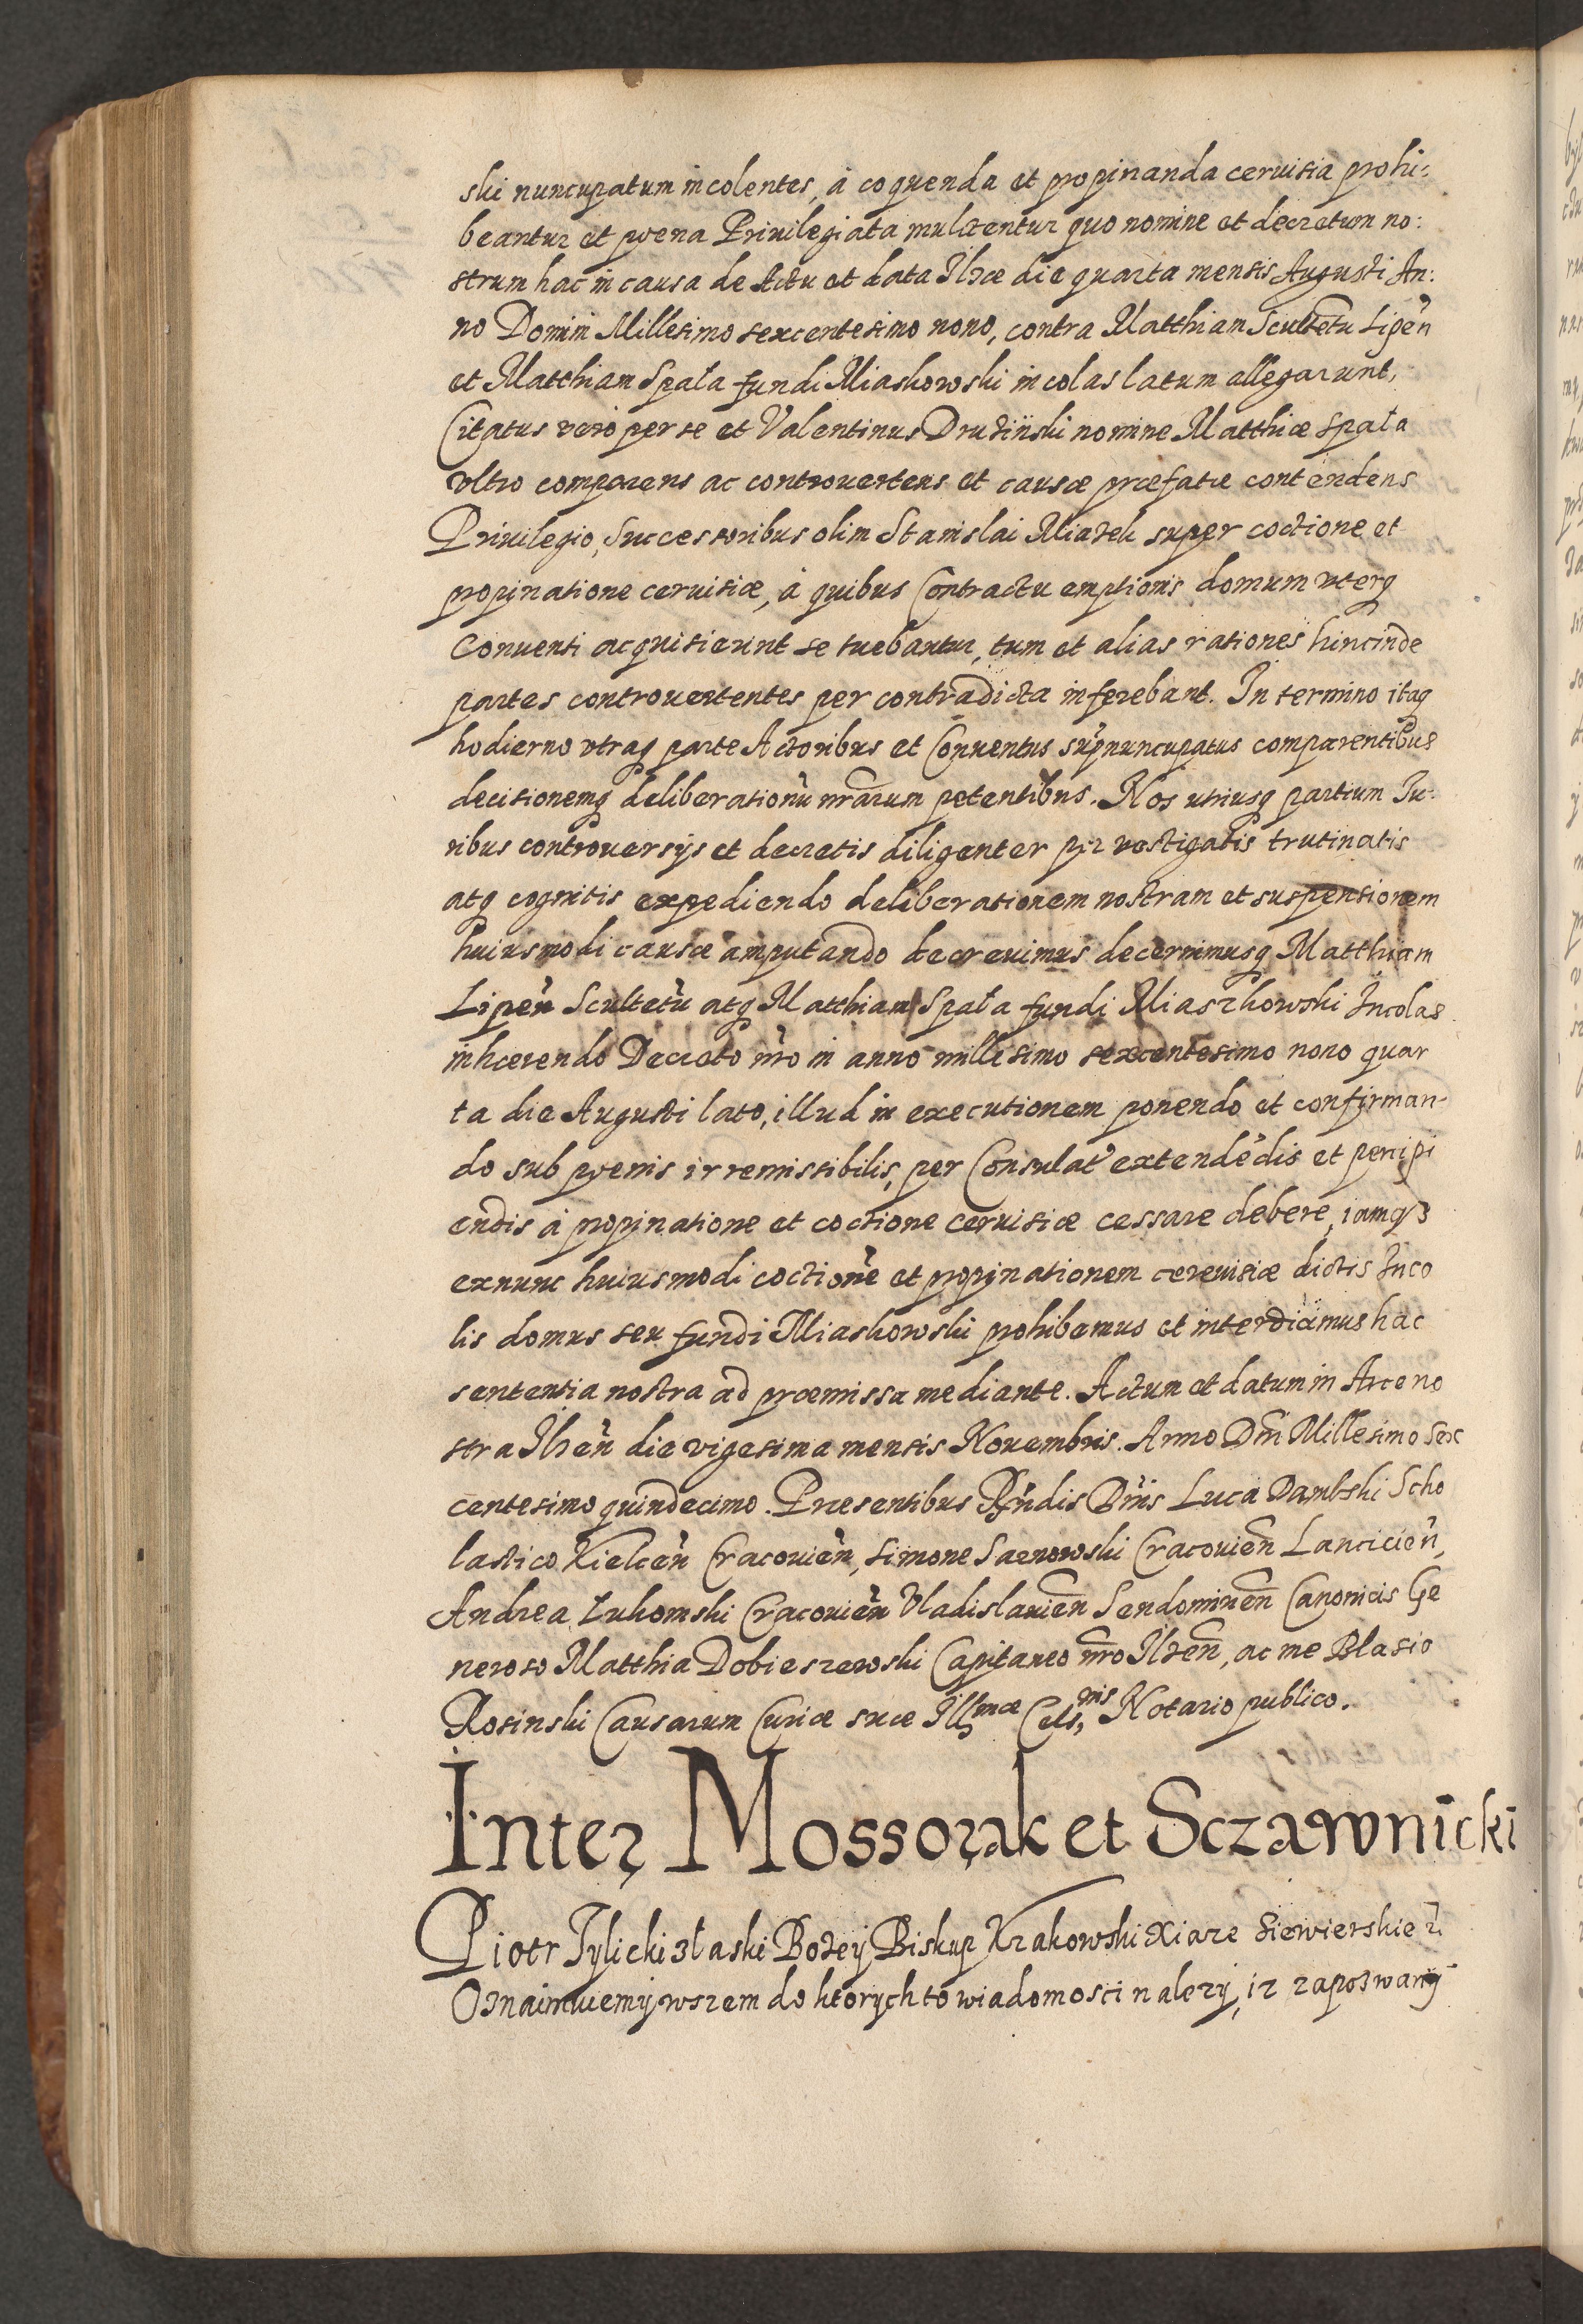 ski nuncupatum incolentes, à coquenda et propinanda ceruisia prohi:
beantur et poena Priuilegiata mulctentur quo nomine et decretum no:
strum hac in causa de Actu et data Ilzæ die quarta mensis Augusti An:
no Domini Millesimo sexcentesimo nono, contra Matthiam Scultetũ Lipeñ
et Matthiam Spała fundi Miaskowski incolas latum allegarunt,
Citatus verò per se et Valentinus Drużiński nomine Matthiæ Spała
vltro comparens ac controuertens et causæ præfatæ contendens
Priuilegio, Successoribus olim Stanislai Miazek super coctione et
propinatione ceruisiæ, à quibus Contractu emptionis domum vterq
Conuenti acquisierunt se tuebantur, tum et alias rationes hincinde
partes controuertentes per contradicta inferebant. In termino itaq
hodierno vtraq parte Actoribus et Conuentus supnuncupatus comparentibus
decisionemq deliberationũ nrarum petentibus. Nos utriusq partium Iu:
ribus controuersijs et decretis diligenter per vestigatis trutinatis
atq cognitis expediendo deliberationem nostram et suspensionem
huiusmodi causæ amputando decreuimus decernimusq Matthiam
Lipeñ Scultetũ atq Matthiam Spała fundi Miaszkowski Incolas
inhærendo Decreto nro in anno millesimo sexcentesimo nono quar
ta die Augusti lato, illud in executionem ponendo et confirman-
do sub poenis irremissibilis, per Consulat' extendẽdis et percipi
endis à propinatione et coctione ceruisiæ cessare debere, iamq3
exnunc huiusmodi coctionẽ et propinationem cereuisiæ dictis Inco
lis domus seu fundi Miaskowski prohibemus et interdicimus hac
sententia nostra ad præmissa mediante. Actum et datum in Arce no
stra Ilzeñ die vigesima mensis Nouembris. Anno Dñi Millesimo Sex
centesimo quindecimo. Præsentibus Rñdis Dñis Luca Dambski Scho
lastico Kielceñ Cracouieñ, Simone Sarnowski Cracouieñ Lancicieñ,
Andrea Łukomski Cracouieñ Vladislauieñ Sendomirieñ Canonicis Ge
neroso Matthia Dobieszewski Capitaneo nro Ilzeñ, ac me Blasio
Rosinski Causarum Curiæ suæ Illmæ Cels,nis Notario publico.
Inter Mossorżak et Sczawnicki
Piotr Tylicki złaski Bożey Biskup Krakowski Xiąze Siewierskie ż
Oznaimuiemÿ wszem do ktorych to wiadomosci nalezÿ, iz zapozwanÿ